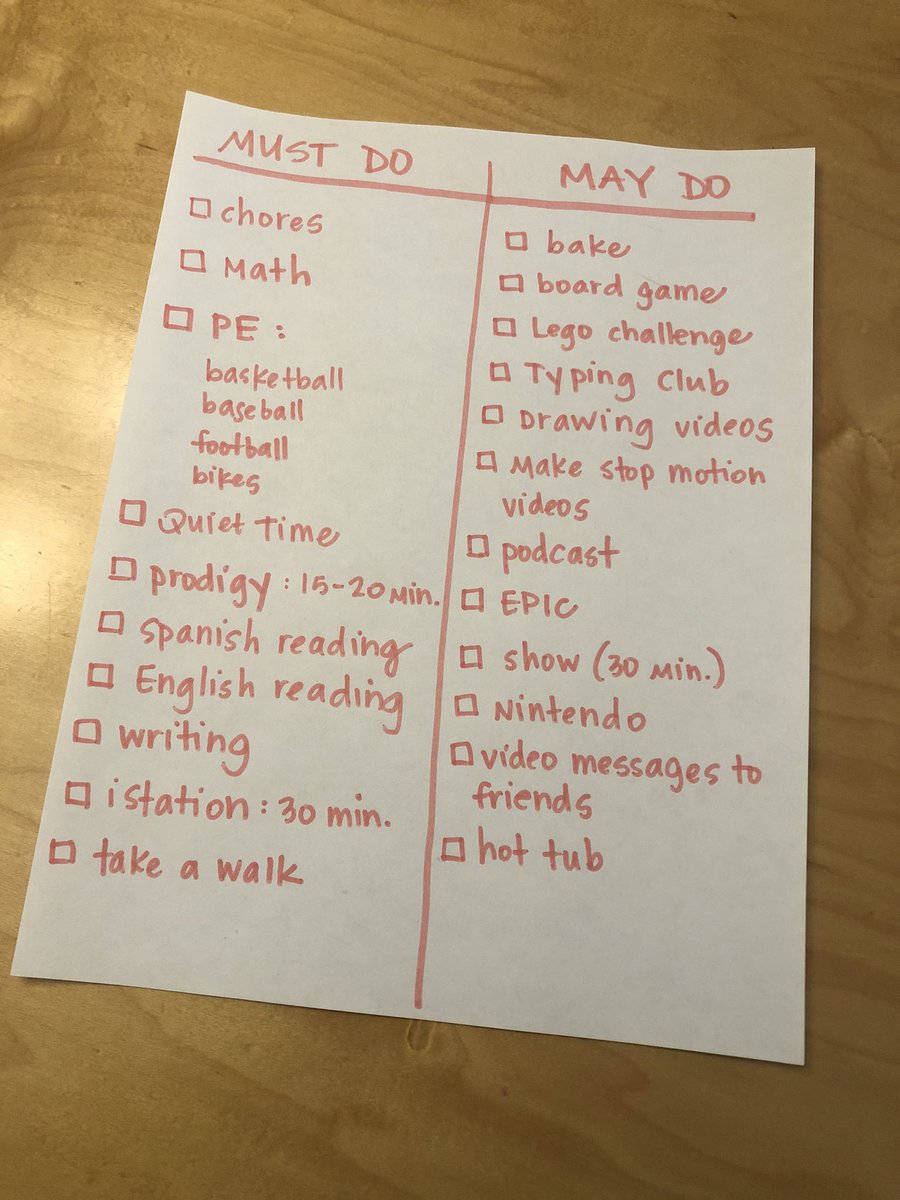 MUST DO
chores
Math
PE :
basketball
baseball
football
bikes
Quiet Time
prodigy : 15-20 min.
spanish reading
English reading
writing
istation : 30 min.
take a walk
MAY DO
bake
board game
Lego challenge
Typing Club
Drawing videos
Make stop motion
videos
podcast
EPIC
show (30 min.)
Nintendo
video messages to
friends
hot tub